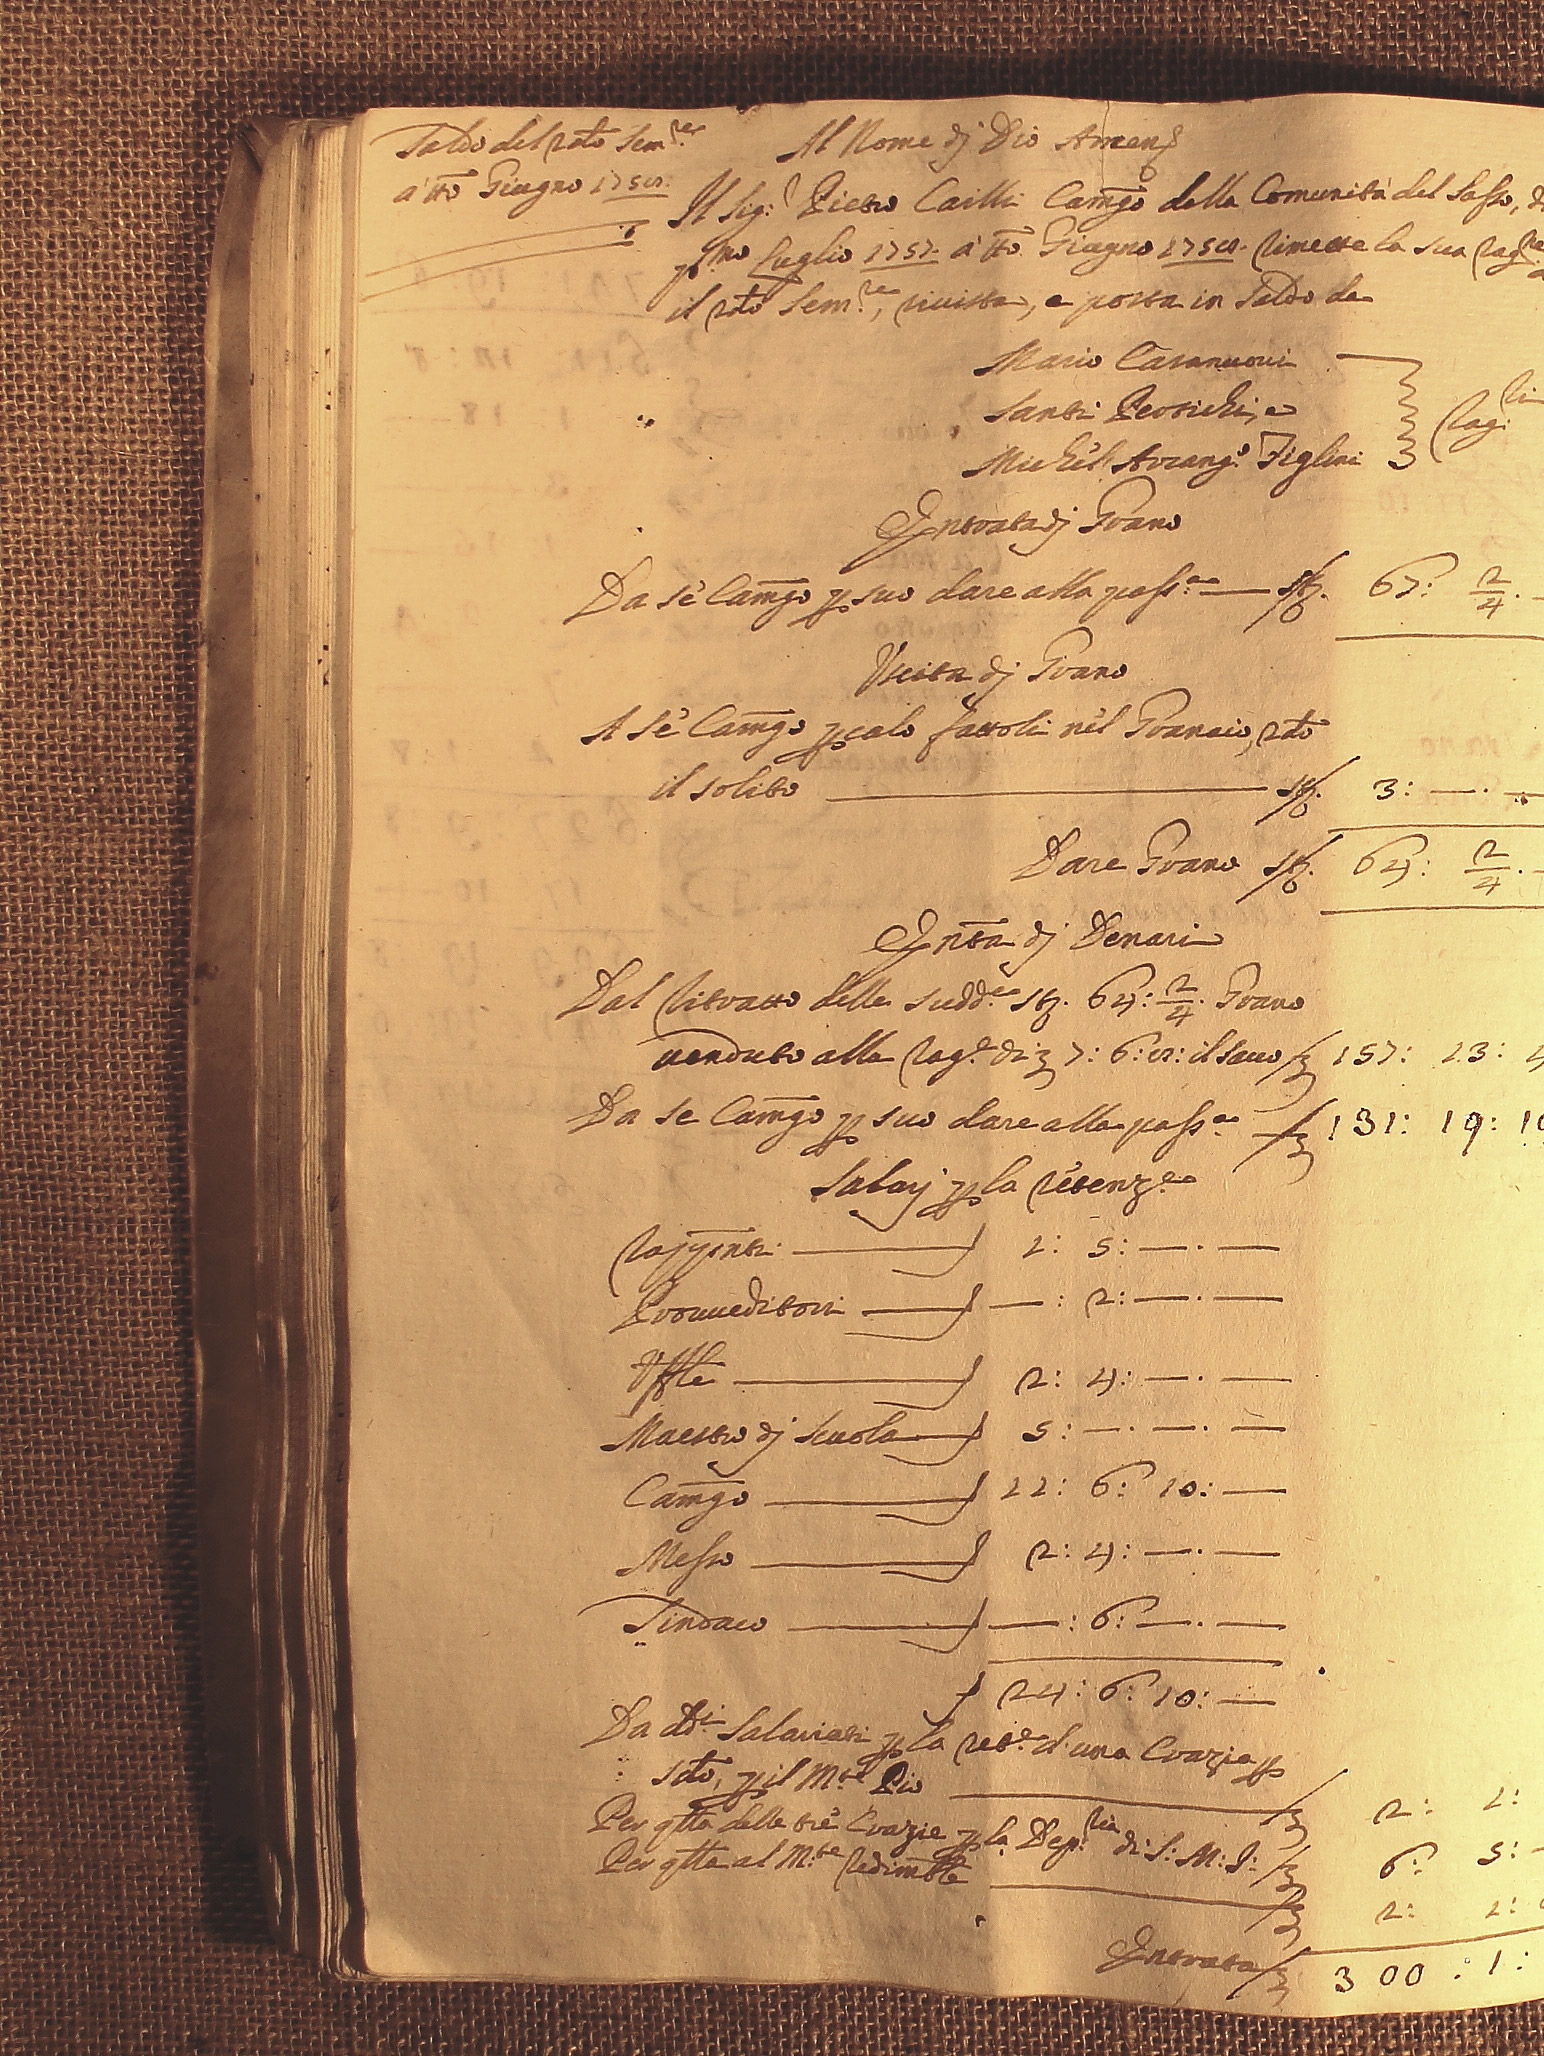 Saldo del sdto Sem.re
a tto Giugno 1758.
Al Nome dj Dio Amen
Il Sig.r Pietro Cailli Camgo della Comunità del Sasso, d
pmo Luglio 1757. a tto Giugno 1758. rimette la sua rag.ne
il sdto Sem.re, rivista, e posta in Saldo da
Mario Casanuovi
Santi Pertichi, e
Michel Arcang.o Figlini
Rag.
Entrata dj Grano
Da sè Camgo p suo dare alla pass.ta — st. 67: 2/4. —
Uscita dj Grano
A sè Camgo p calo fattoli nel Granaio, sdto
il solito — st. 3: —. —
Dare Grano st. 64: 2/4. —
Entta dj Denari
Dal ritratto delle sudd.e st. 64: 2/4. Grano
venduto alla rag.e di 7: 6: 8: il sacco 157: 13: 4
Da se Camgo p suo dare alla pass.ta — 131: 19: 10
Salarj p la retenz.e
Rappnti — 1: 5: —. —
Proveditori — —: 2: —. —
Uffle — 2: 4: —. —
Maestro dj Scuola — 5: —. —. —
Camgo — 11: 6: 10: —
Messo — 2: 4: —. —
Sindaco — —: 6: —. —
24: 6: 10: —
Da dti Salariati p la ret.e d'una Crazia p
sdto, p il M.te Pio — 2: 1:
Per qlla delle tre Crazie p la Dep.ria di S: M: I: 6: 5: —
Per qlla al M.te redimble — 2: 1:
Entrata 300: 1: